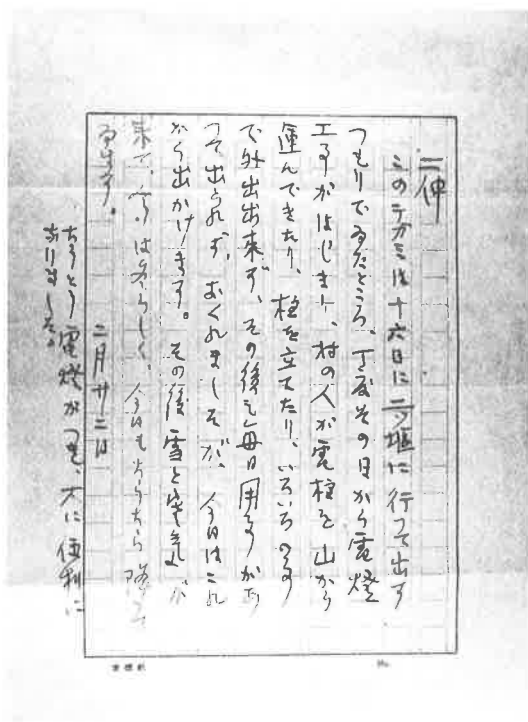 二伸
このテガミは十六日に二ツ堰に行つて出す
つもりでゐたところ、丁度その日から電燈
工事がはじまり、村の人が電柱を山から
運んできたり、柱を立てたり、いろいろの事
で外出出来ず、その後も毎日用事があ
つて出られず、おくれましたが、今日はこれ
から出かけます。その後雪と寒気が
来て、今日もちらちら降つて
ゐます。
二月廿二日
たうとう電燈がつき、大に便利に
なりました。